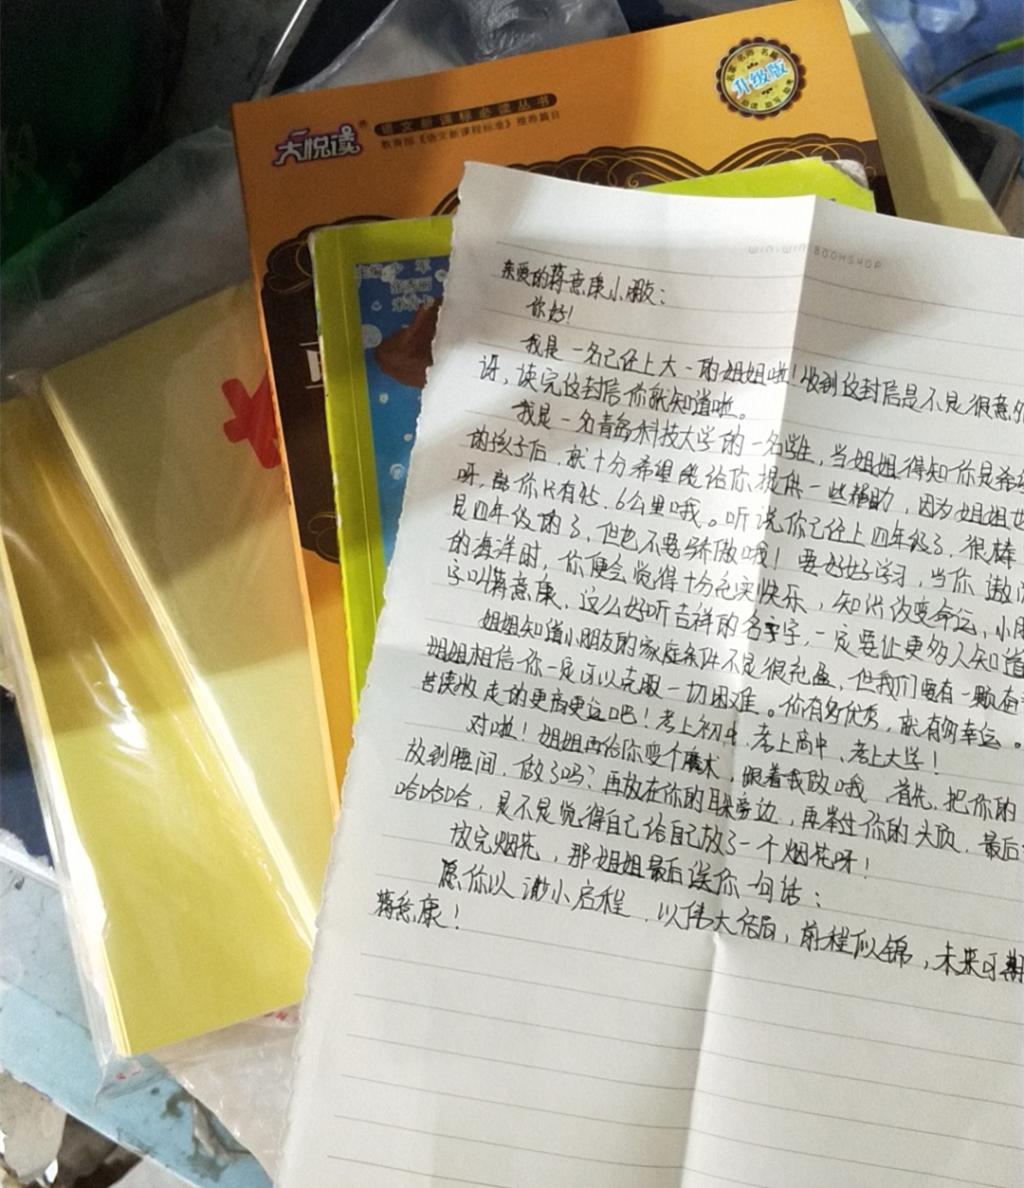 大悦读
语文新课标必读丛书
教育部《语文新课程标准》推荐篇目
升级版
WIN-WIN BOOKSHOP
亲爱的蒋意康小朋友：
你好！
我是一名已经上大一的姐姐啦！收到这封信是不是很意外
呀，读完这封信你就知道啦。
我是一名青岛科技大学的一名学生，当姐姐得知你是希
的孩子后，就十分希望能给你提供一些帮助，因为姐姐也
呀，离你只有 6公里哦。听说你已经上四年级了，很棒
是四年级的了，但也不要骄傲哦！要好好学习，当你遨
的海洋时，你便会觉得十分充实快乐，知识改变命运，小朋
字叫蒋意康，这么好听吉祥的名字，一定要让更多人知道
姐姐知道小朋友的家庭条件不是很充盈，但我们要有一颗
姐姐相信你一定可以克服一切困难。你有多优秀，就有多幸运。
走的更高更远吧！考上初中，考上高中，考上大学！
对啦！姐姐再给你变个魔术，跟着我做哦，首先，把你的
放到腰间，做了吗？再放在你的耳朵旁边，再举过你的头顶，最后
哈哈哈，是不是觉得自己给自己放了一个烟花呀！
放完烟花，那姐姐最后送你一句话：
愿你以渺小启程，以伟大结局，前程似锦，未来可期
蒋意康！